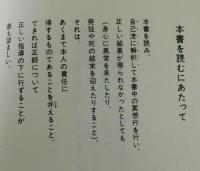 本書を読むにあたって
本書を読み、
自己流に解釈して本書中の冥想行を行い、
正しい結果が得られなかったとしても
(身心に異常を来たしたり、
発狂や死の結果を迎えたりすること)、
それは、
あくまで本人の責任に
帰するものであることを弁えること。
できれば正師について
正しい指導の下に行ずることが
最も望ましい。